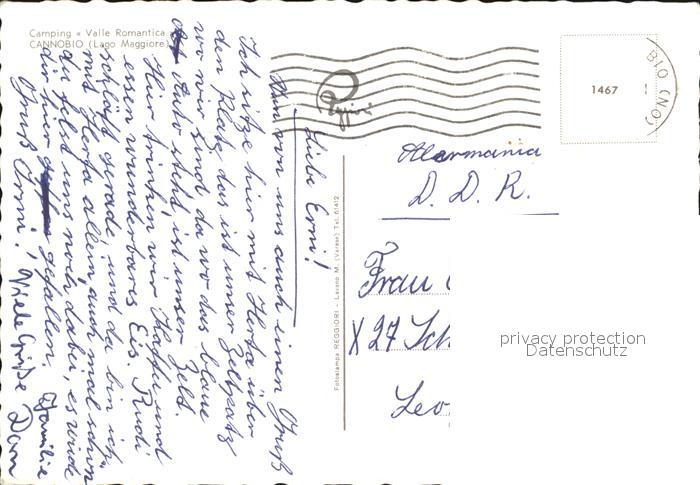 Camping « Valle Romantica »
CANNOBIO (Lago Maggiore)
Liebe Erni!
Nun von uns auch einen Gruß
Ich sitze hier mit Herta über
den Platz, das ist unser Zeltplatz
wo wir sind, da wo das blaue
Auto steht, ist unser Zelt.
Hier trinken wir Kaffee und
essen wunderbares Eis. Rudi
schläft gerade, und da bin ich
mit Herta allein, auch mal schön
du fehlst uns noch dabei, es würde
dir hier gefallen.
Gruß Irmi! Viele Grüße Familie
Fotostampa REGGIORI - Laveno M. (Varese) Tel. 61412
Reggiori
1467
BIO (NO)
Allermania
D. D. R.
Frau
X 27 Sch
Leo
privacy protection
Datenschutz